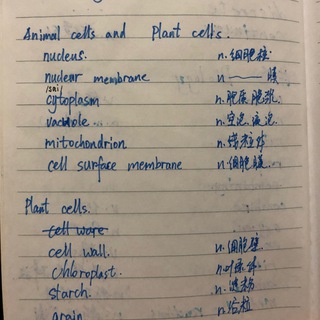 Animal cells and Plant cells.
nucleus. n. 细胞核
nuclear membrane n. —— 膜
/sai/
cytoplasm n. 胞质
vacuole n. 空泡 液泡
mitochondrion n. 线粒体
cell surface membrane n. 细胞膜
Plant cells.
cell ware
cell wall. n. 细胞壁
chloroplast. n. 叶绿体
starch. n. 淀粉
grain n.